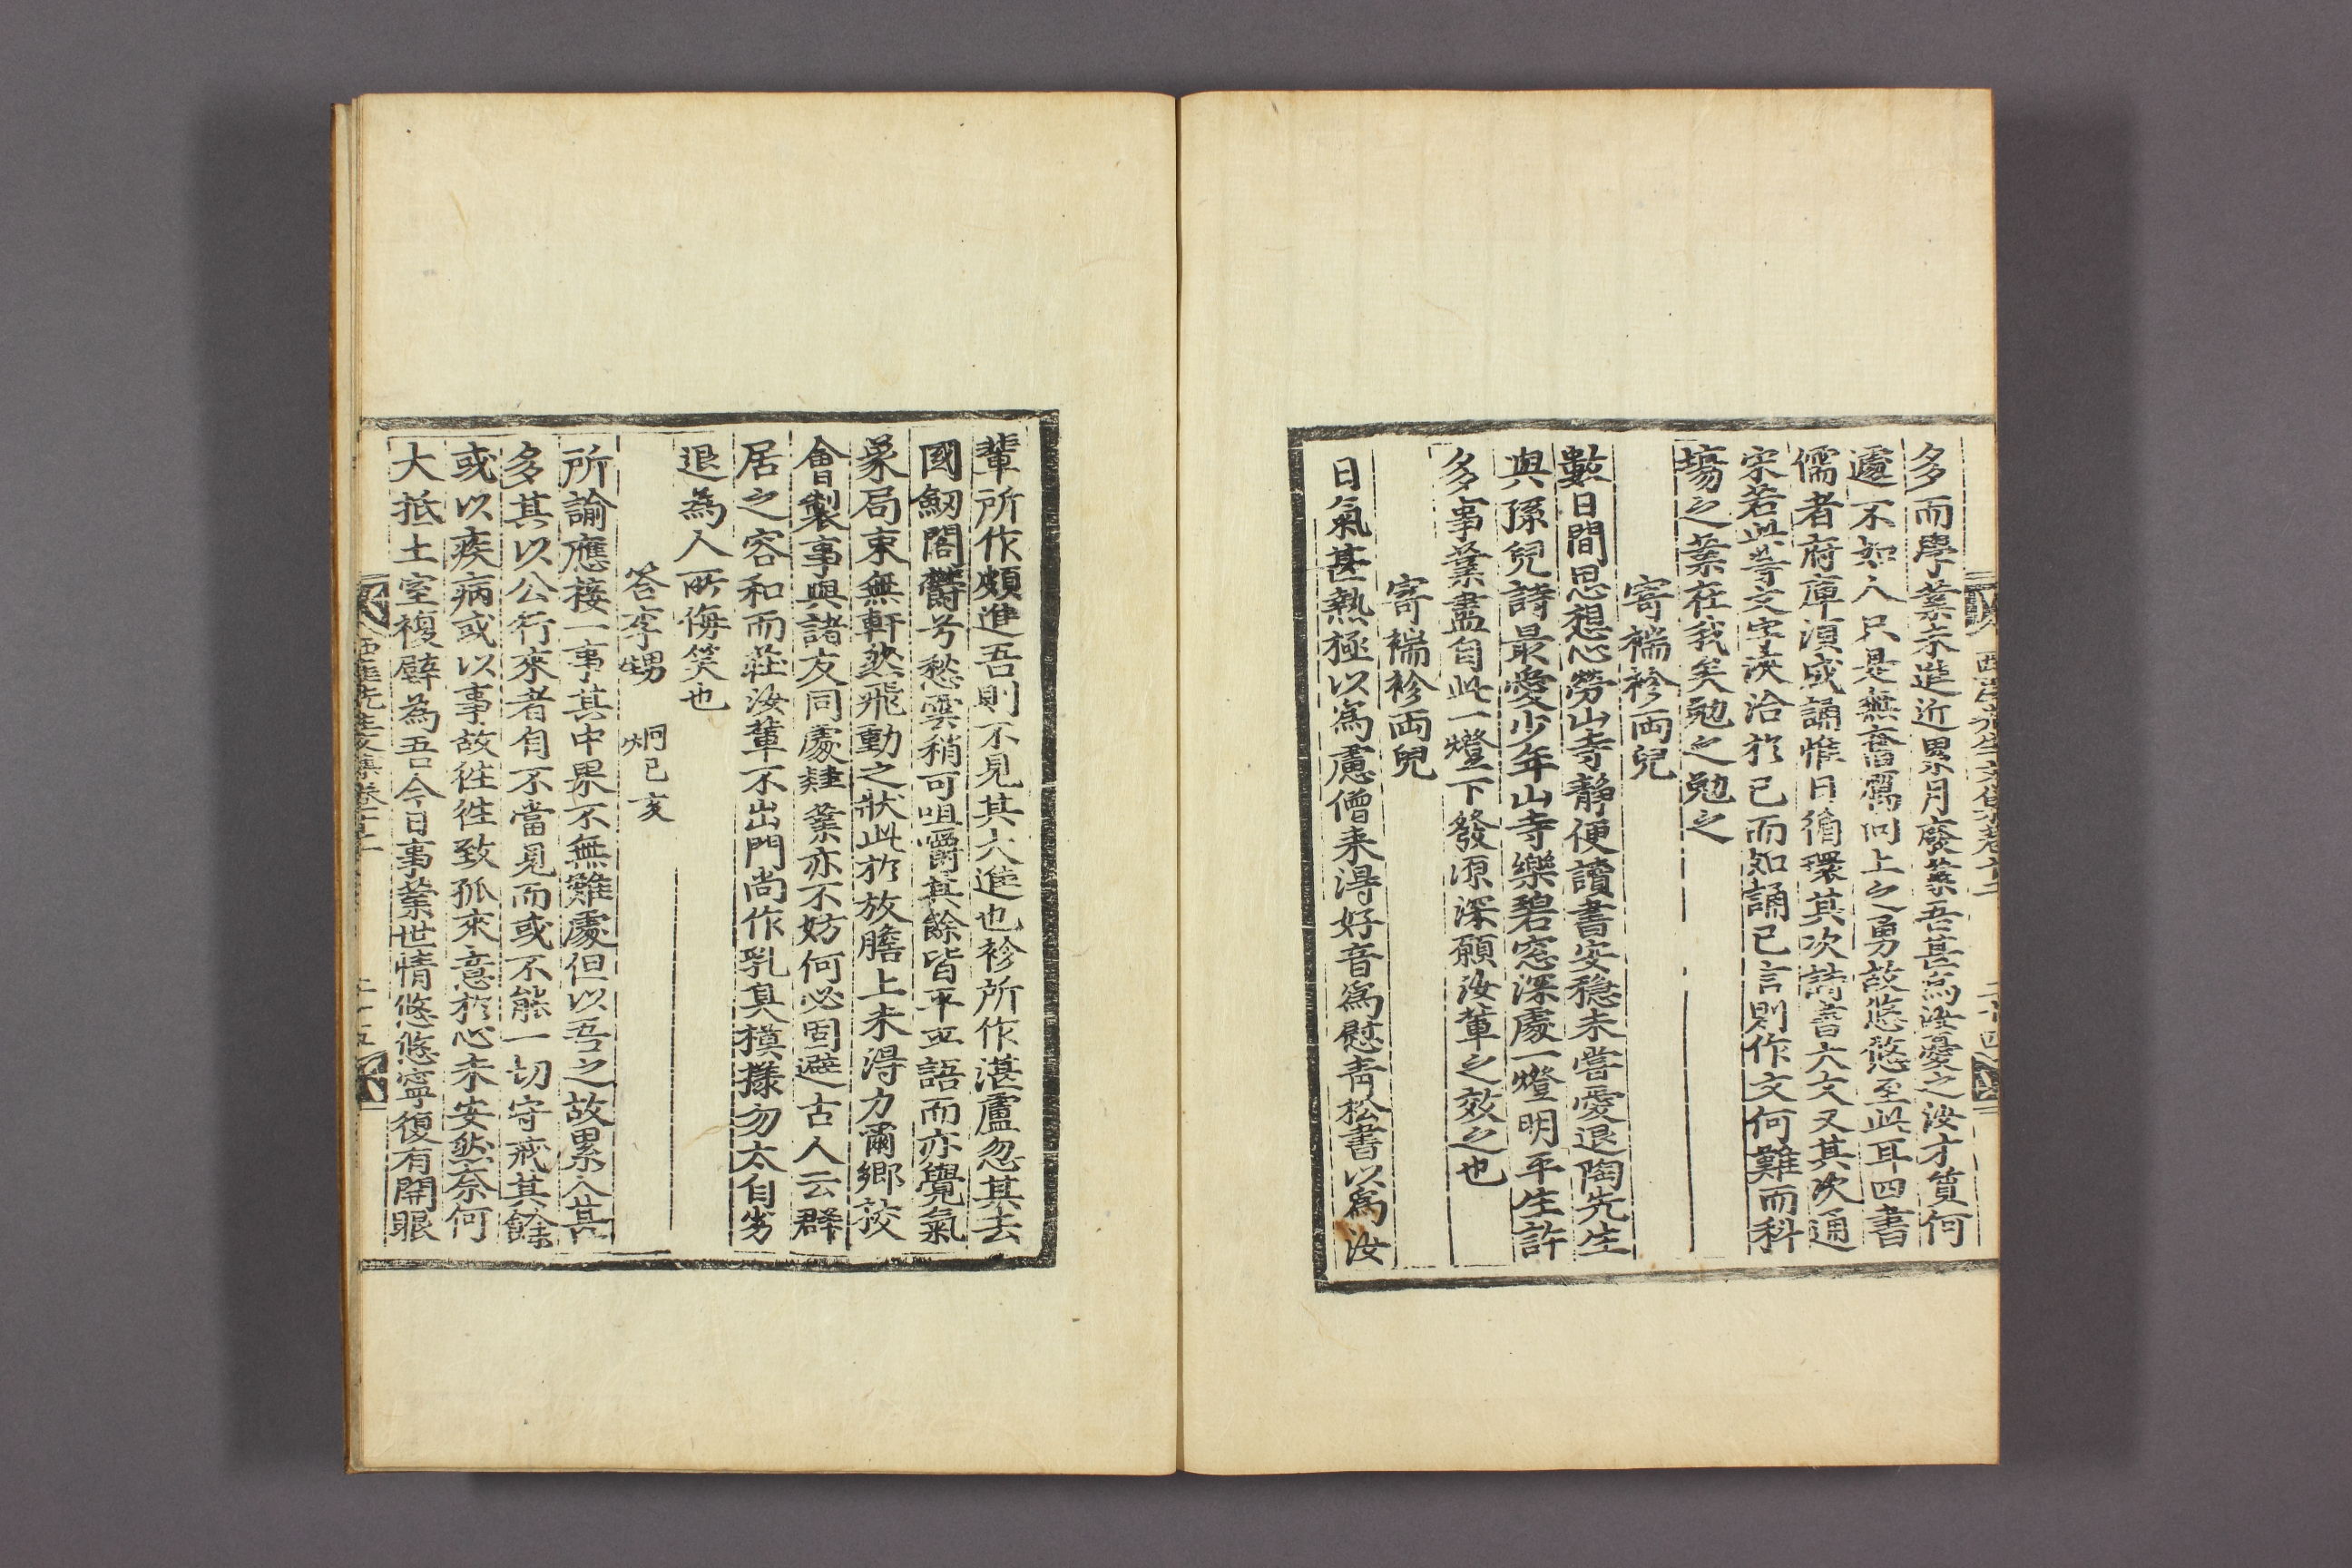 多而學業未進近累月廢業吾甚爲汝憂之汝才質何
遽不如人只是無奮厲向上之勇故悠悠至此耳四書
儒者府庫須成誦惟日循環其次詩書大文又其次通
宋若此等文字浹洽於已而如誦已言則作文何難而科
塲之業在我矣勉之勉之
寄褍袗両兒
數日間思想心勞山寺静便讀書安穏未嘗愛退陶先生
與孫兒詩最愛少年山寺樂碧窓深處一燈明平生許
多事業盡自此一燈下發源深願汝軰之效之也
寄褍袗両兒
日氣甚熱極以爲慮僧来淂好音爲慰靑松書以爲汝
輩所作頗進吾則不見其大進也袗所作湛盧忽其去
國劒閣欝兮愁雲稍可咀嚼其餘皆平平語而亦覺氣
象局束無軒然飛動之狀此於放膽上未淂力爾鄉校
會製事與諸友同處肄業亦不妨何必固避古人云羣
居之容和而莊汝軰不出門尚作乳臭模㨾勿太自劣
退為人所侮笑也
答李甥 烱己亥
所諭應接一事其中果不無難處但以吾之故累人甚
多其以公行來者自不當見而或不能一切守戒其餘
或以疾病或以事故徃徃致孤來意於心未安然奈何
大抵土室複壁為吾今日事業世情悠悠寧復有開眼